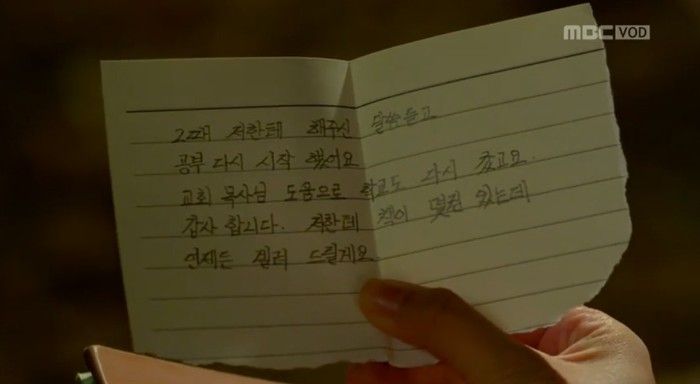 MBC VOD
그때 저한테 해주신 말씀듣고
공부 다시 시작 했어요
교회 목사님 도움으로 학교도 다시 갔고요.
감사 합니다. 저한테 책이 몇권 있는데
언제든 빌려 드릴게요